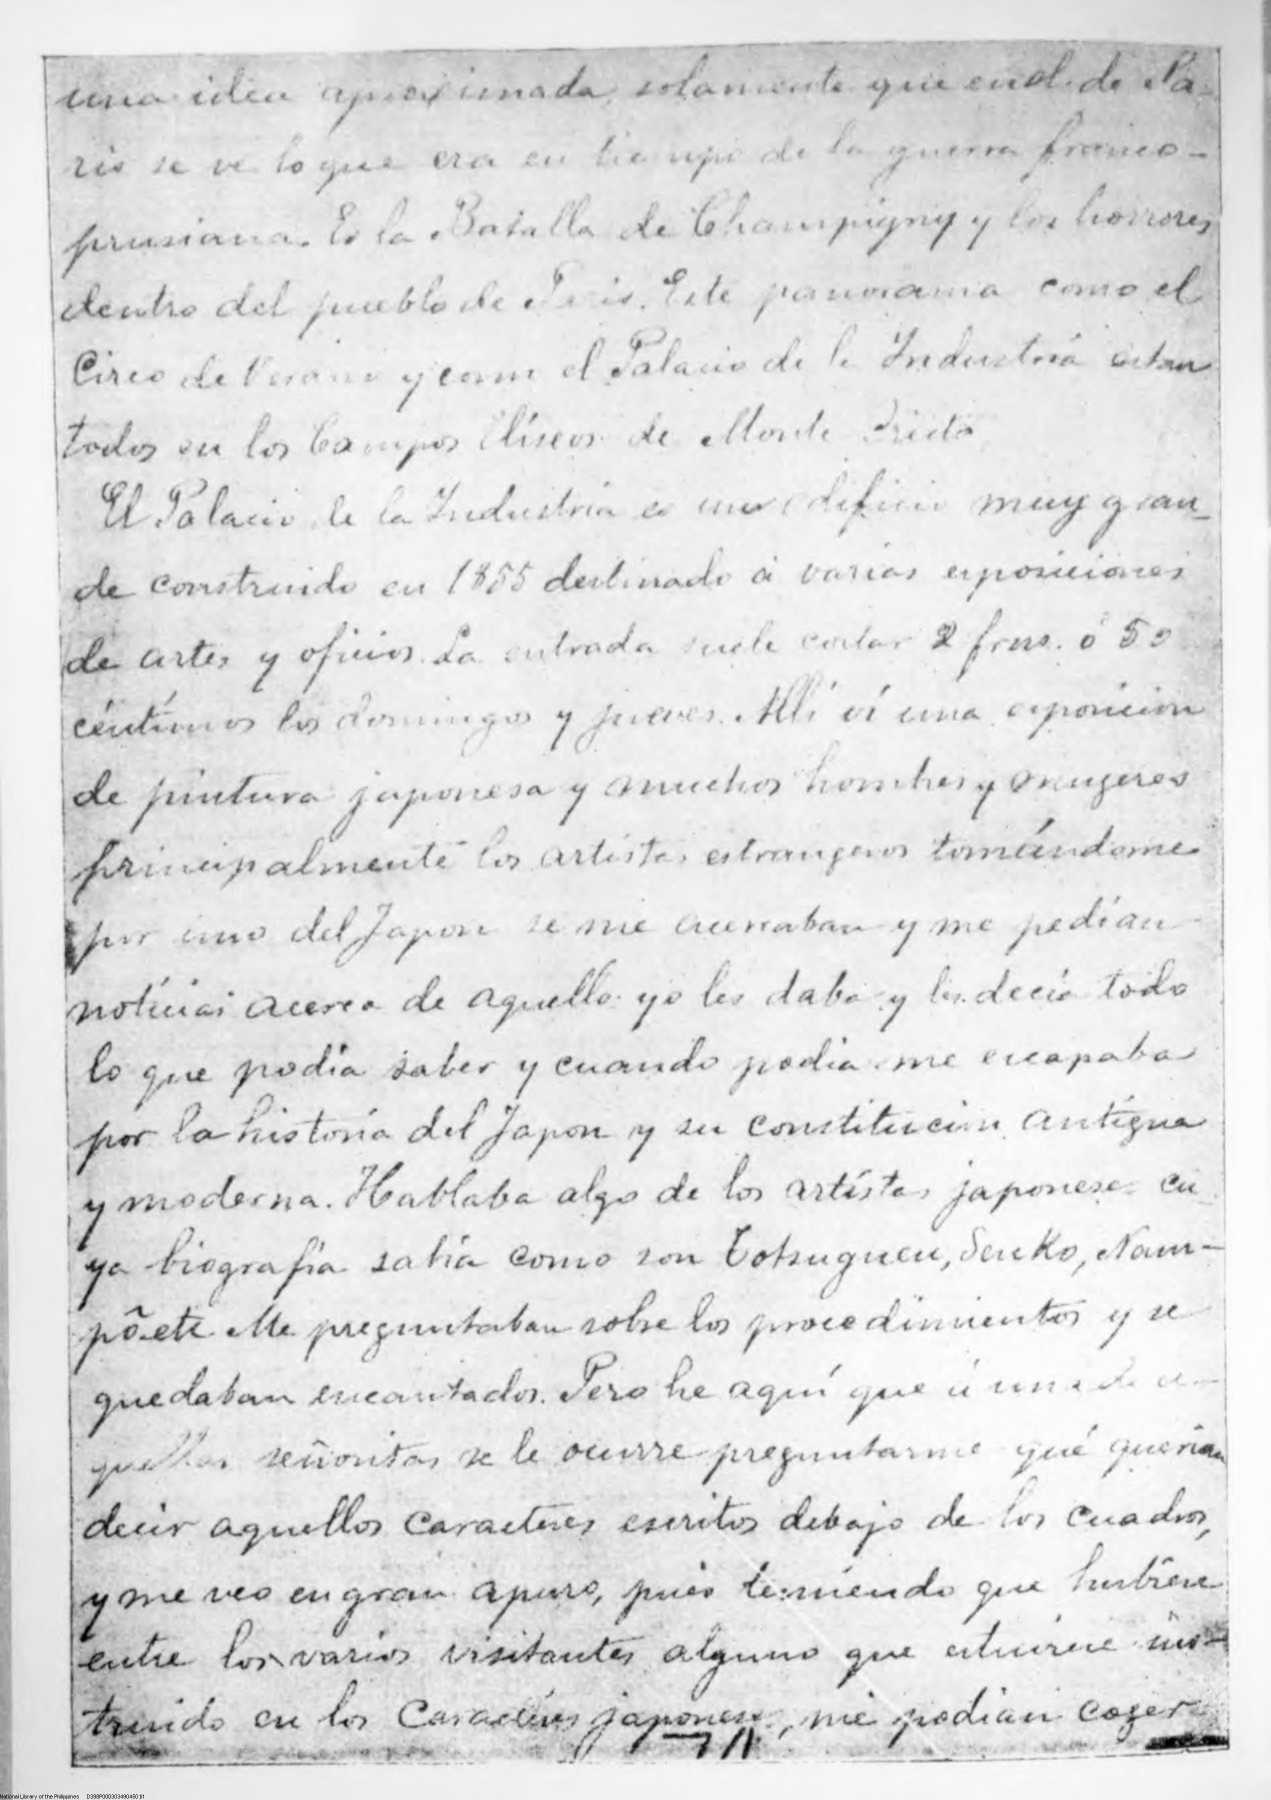 una idea aproximada, solamente que en el de Pa-
ris se ve lo que era en tiempo de la guerra franco-
prusiana. Es la Batalla de Champigny y los horrores
dentro del pueblo de Paris. Este panorama como el
Circo de Verano y como el Palacio de la Industria estan
todos en los Campos Elíseos de Monte
El Palacio de la Industria es un edificio muy gran-
de construido en 1855 destinado á varias exposiciones
de artes y oficios. La entrada suele costar 2 frns. ó 50
céntimos los domingos y jueves. Allí ví una exposicion
de pintura japonesa y muchos hombres y mugeres
principalmente los artistas estrangeros tomándome
por uno del Japon se me acercaban y me pedían
noticias acerca de aquello. yo les daba y les decía todo
lo que podía saber y cuando podia me escapaba
por la historia del Japon y su constitucion antigua
y moderna. Hablaba algo de los artistas japoneses cu
ya biografía sabía como son Totsuguen, Senko, Nam-
põ etc Me preguntaban sobre los procedimientos y se
quedaban encantados. Pero he aquí que á una de a-
quellas señoritas se le ocurre preguntarme qué querian
decir aquellos caracteres escritos debajo de los cuadros,
y me veo en gran apuro, pues temiendo que hubiese
entre los varios visitantes alguno que estuviese ins-
truido en los Caractéres japoneses, me podian coger
National Library of the Philippines